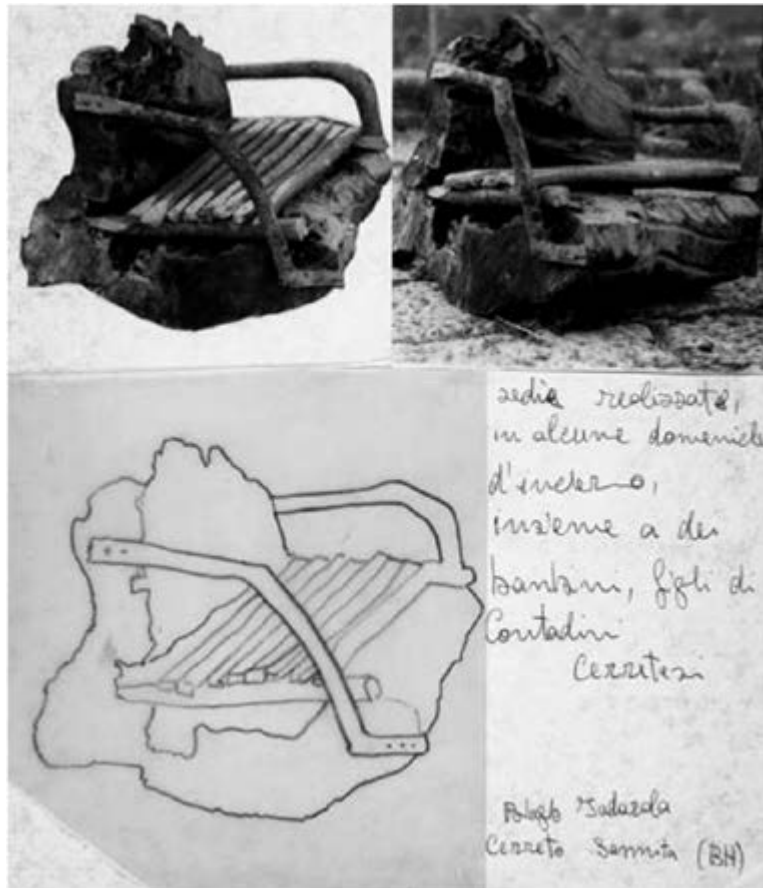 sedia realizzata,
in alcune domeniche
d'inverno,
insieme a dei
bambini, figli di
Contadini
Cerretesi
Cerreto Sannita (BN)